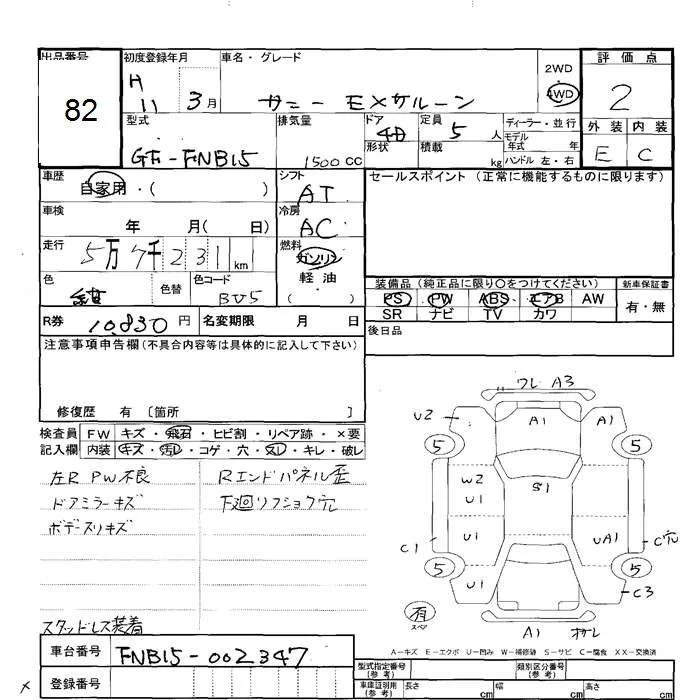 出品番号
82
初度登録年月
H
11 3月
車名・グレード
サニー EXサルーン
2WD
4WD
評価点
2
外装 内装
E C
型式
GF-FNB15
排気量
1500 CC
ドア
4D
形状
定員
5 人
積載
kg
ディーラー・並行
モデル
年式 年
ハンドル 左・右
車歴
自家用・( )
シフト
AT
セールスポイント (正常に機能するものに限ります)
車検
年 月( 日)
冷房
AC
走行
5万7千231km
燃料
ガソリン
軽油
( )
色
紺
色替
色コード
BV5
装備品 (純正品に限り〇をつけてください)
新車保証書
PS PW ABS エアB AW
SR ナビ TV カワ
有・無
R券 10830 円
名変期限 月 日
後日品
注意事項申告欄(不具合内容等は具体的に記入して下さい)
修復歴 有 〔箇所 〕
検査員 FW キズ・飛石・ヒビ割・リペア跡・×要
記入欄 内装 キズ・汚レ・コゲ・穴・スレ・キレ・破レ
左R PW不良
ドアミラーキズ
ボデースリキズ
Rエンドパネル歪
下廻リフショク穴
スタッドレス装着
ワレ A3
U2 A1 A1
5 5
W2
U1
S1
U1 UA1
C1 C穴
5 5
U1 C3
有
スペア
A1 オサレ
A-キズ E-エクボ U-凹み W-補修跡 S-サビ C-腐食 XX-交換済
車台番号 FNB15-002347
登録番号
型式指定番号
(参考)
類別区分番号
(参考)
車庫証明用
(参考)
長さ cm 幅 cm 高さ cm
×